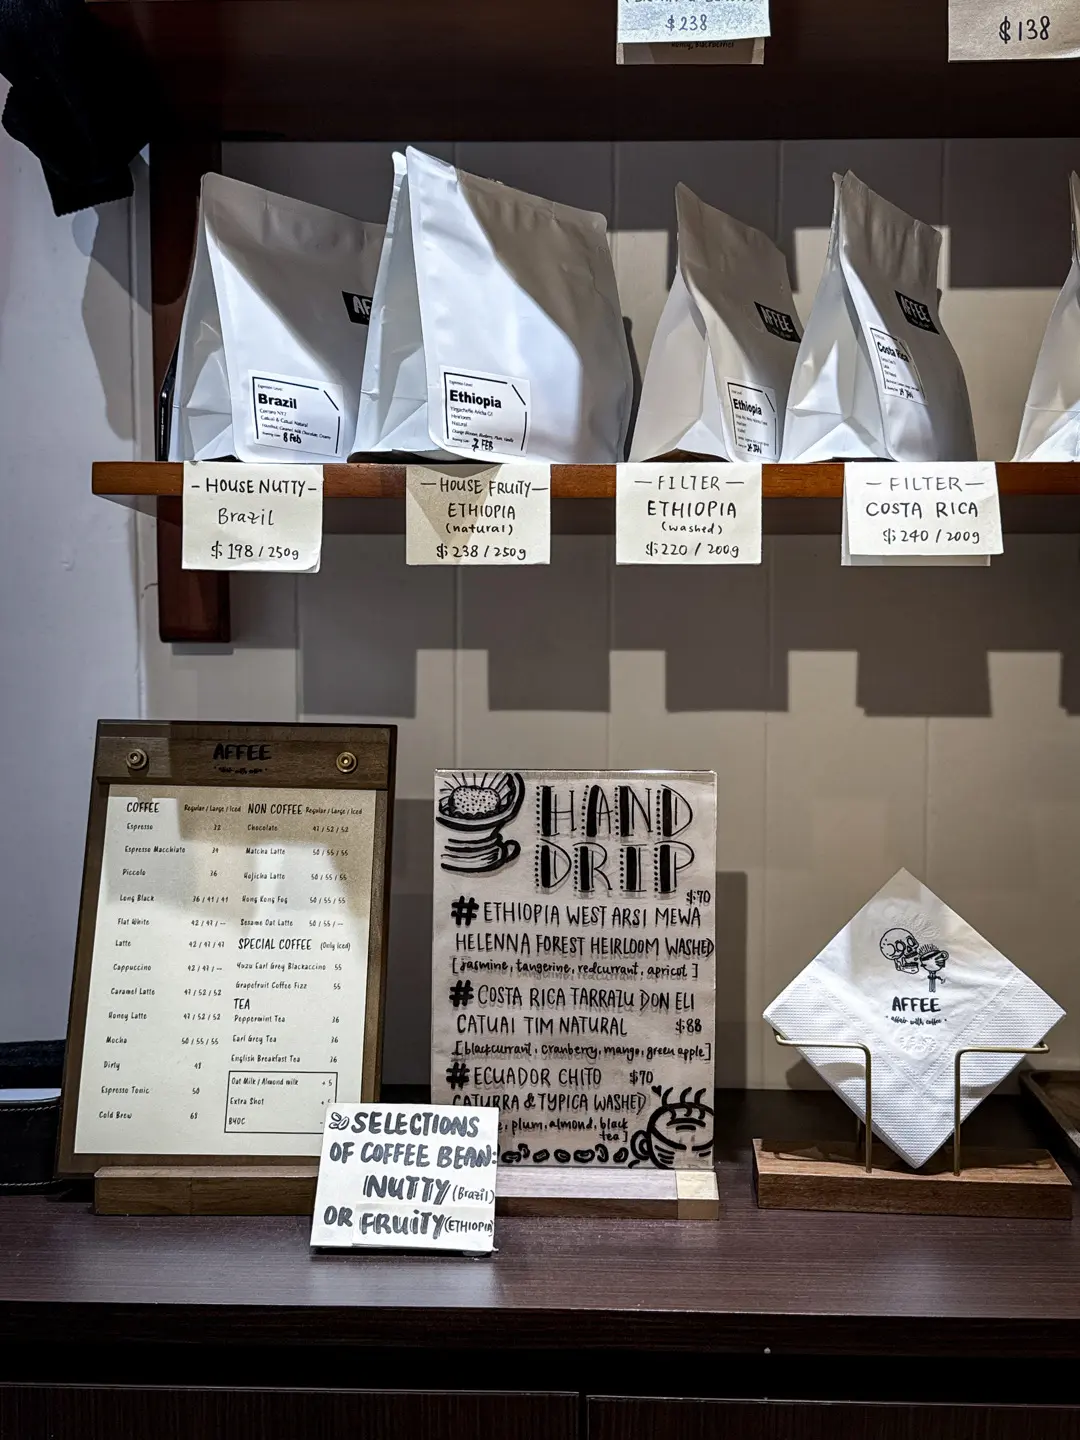 $238
$138
AFFEE
AFFEE
Brazil
Cerrado NY2
Catuai & Catuai Natural
8 Feb
Ethiopia
Yirgacheffe Aricha G1
Heirloom
Natural
7 FEB
Ethiopia
JAN
Costa Rica
JAN
- HOUSE NUTTY -
Brazil
$198 / 250g
- HOUSE FRUITY -
ETHIOPIA
(natural)
$238 / 250g
- FILTER -
ETHIOPIA
(washed)
$220 / 200g
- FILTER -
COSTA RICA
$240 / 200g
AFFEE
COFFEE Regular / Large / Iced
Espresso 32
Espresso Macchiato 34
Piccolo 36
Long Black 36 / 41 / 41
Flat White 42 / 47 / --
Latte 42 / 47 / 47
Cappuccino 42 / 47 / --
Caramel Latte 47 / 52 / 52
Honey Latte 47 / 52 / 52
Mocha 50 / 55 / 55
Dirty 48
Espresso Tonic 50
Cold Brew 68
NON COFFEE Regular / Large / Iced
Chocolate 47 / 52 / 52
Matcha Latte 50 / 55 / 55
Hojicha Latte 50 / 55 / 55
Hong Kong Fog 50 / 55 / 55
Sesame Oat Latte 50 / 55 / --
SPECIAL COFFEE (Only Iced)
Yuzu Earl Grey Blackaccino 55
Grapefruit Coffee Fizz 55
TEA
Peppermint Tea 36
Earl Grey Tea 36
English Breakfast Tea 36
Oat Milk / Almond milk + 5
Extra Shot
BYOC
HAND
DRIP
$70
# ETHIOPIA WEST ARSI MEWA
HELENNA FOREST HEIRLOOM WASHED
[jasmine, tangerine, redcurrant, apricot]
# COSTA RICA TARRAZU DON ELI
CATUAI TIM NATURAL $88
[blackcurrant, cranberry, mango, green apple]
# ECUADOR CHITO $70
CATURRA & TYPICA WASHED
, plum, almond, black
tea]
SELECTIONS
OF COFFEE BEAN:
NUTTY (Brazil)
OR FRUITY (ETHIOPIA)
AFFEE
affair with coffee